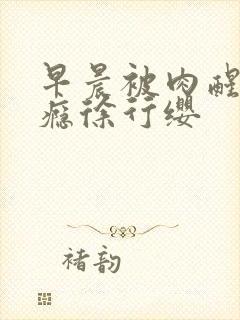 早晨被肉醒
瘾徐行缨
褚韵